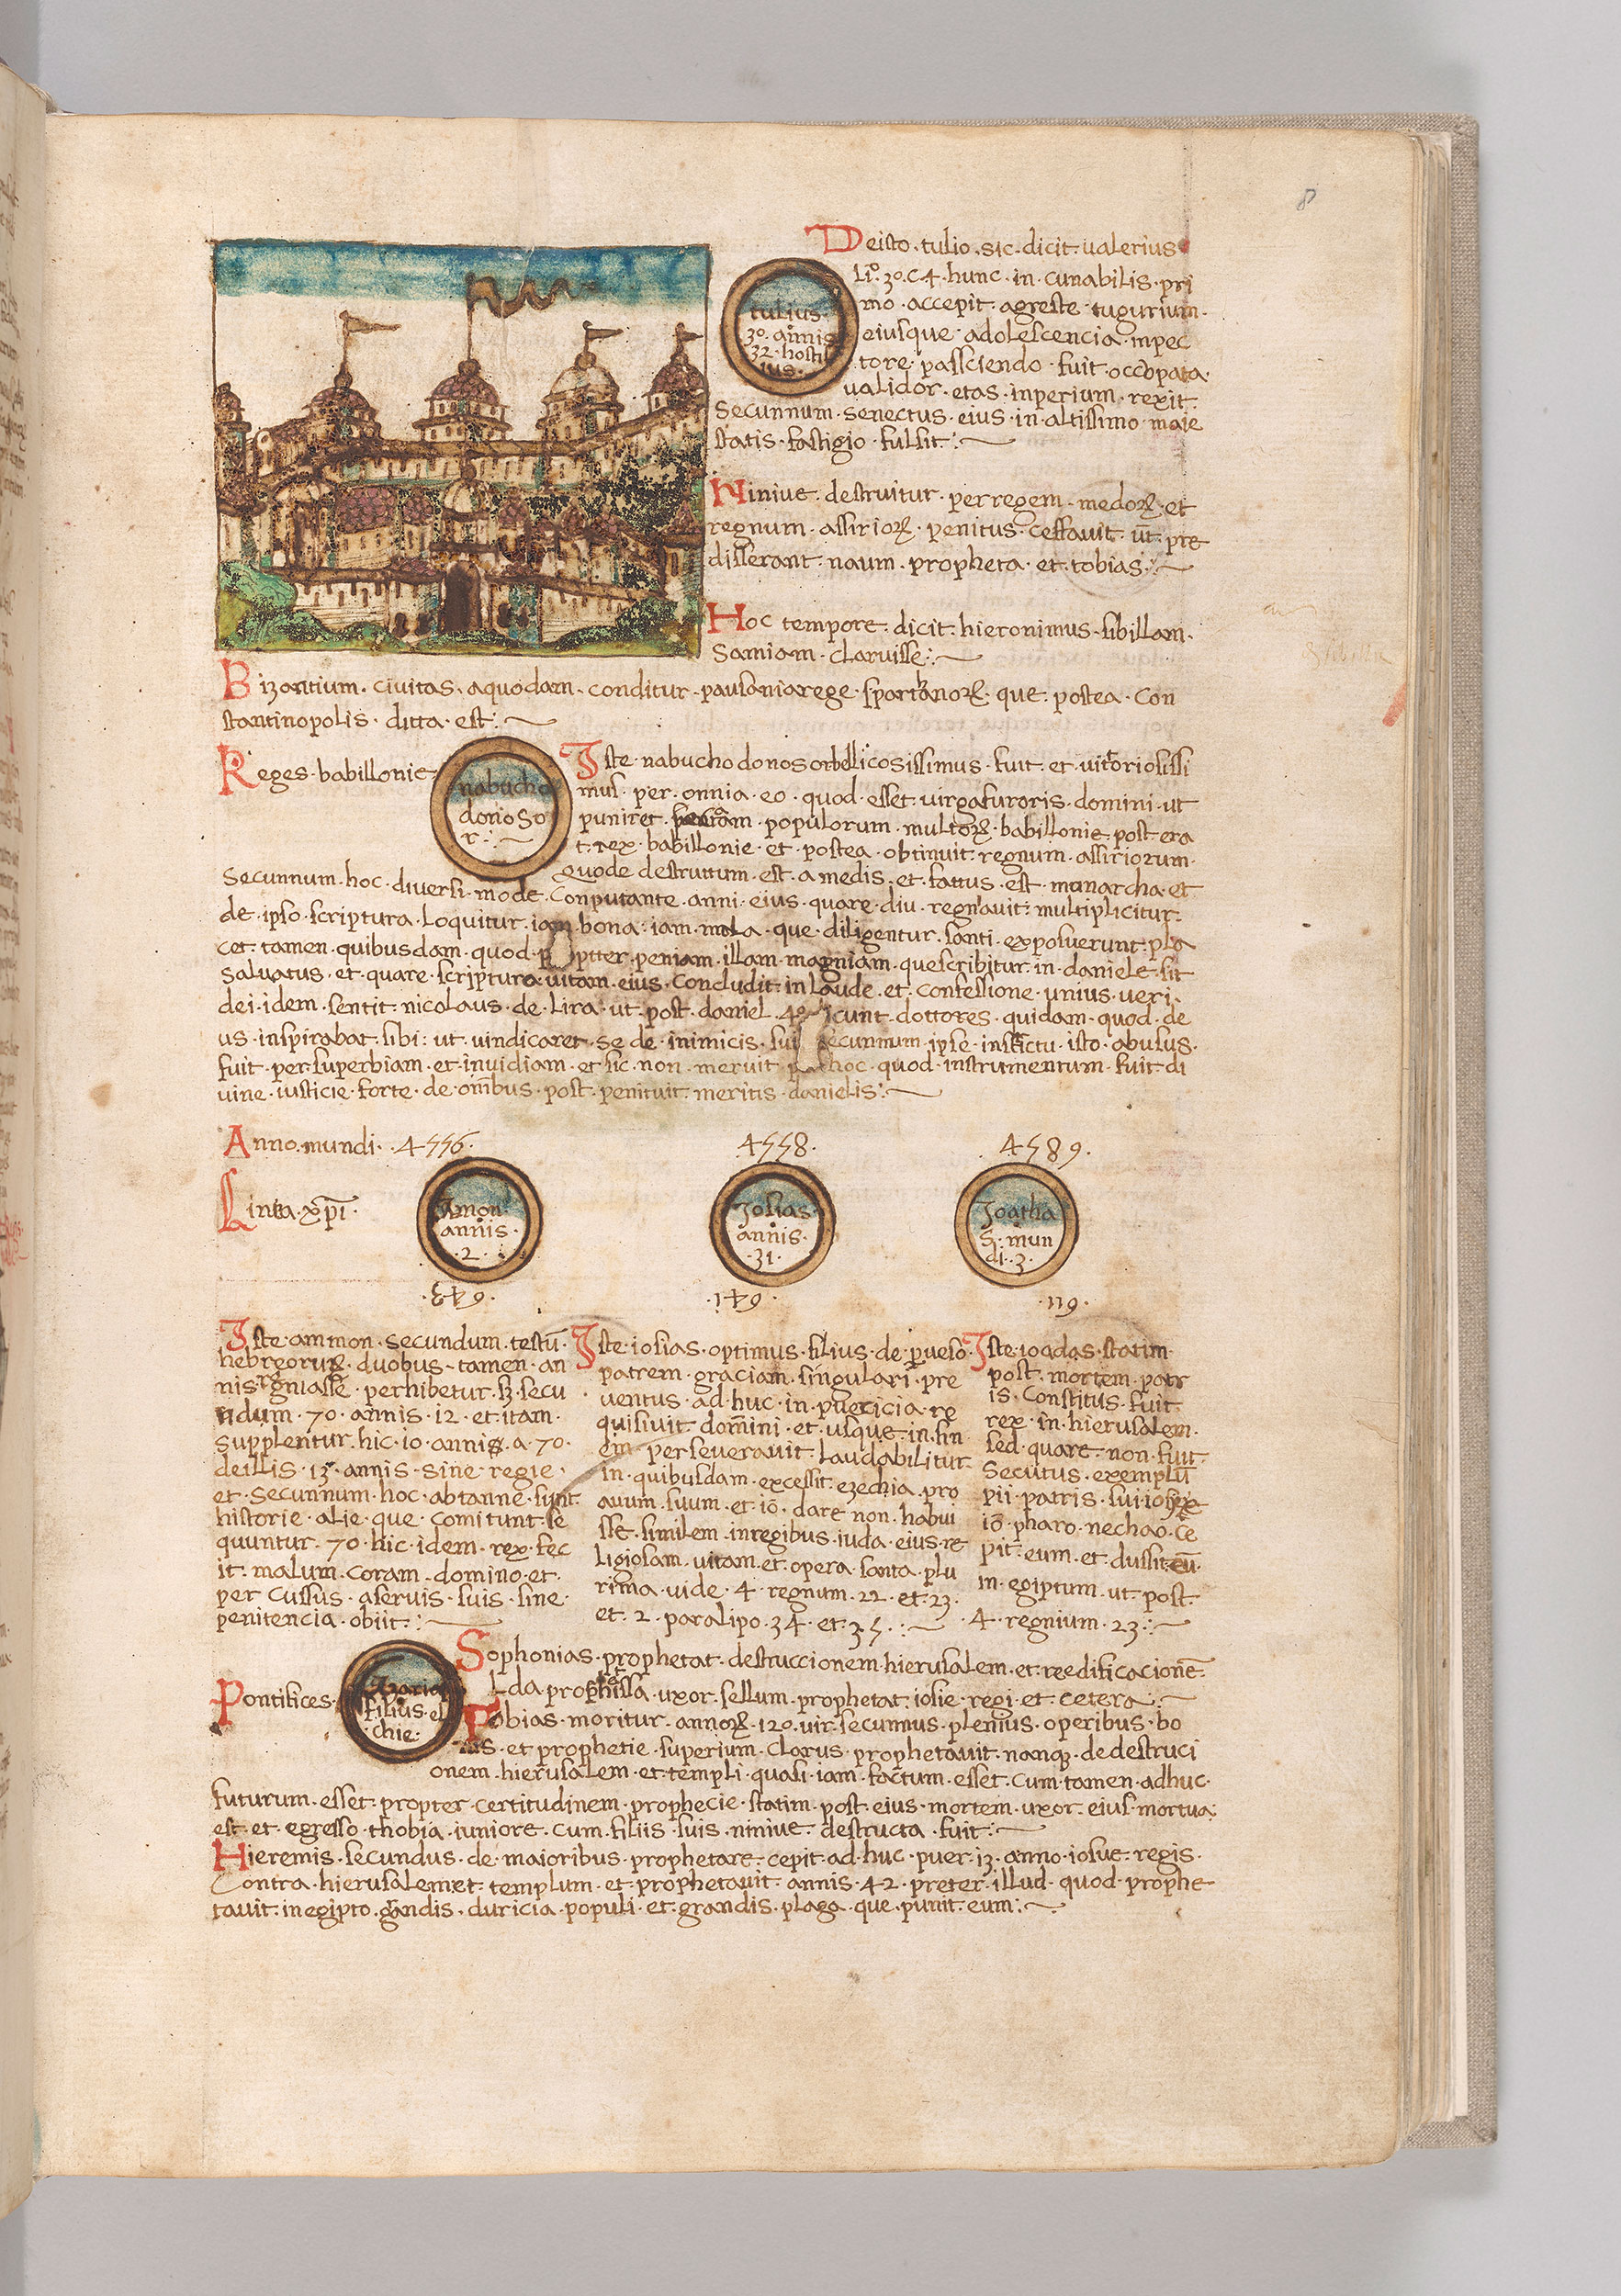 8
Deisto · tulio · sic · dicit · ualerius
li⁰ · 3⁰ · c · 4 · hunc · in · cunabilis · pri
mo · accepit · agreste · tugurium ·
eiusque · adolescencia · inpec
tore · passciendo · fuit · occupata ·
ualidor · etas · inperium · rexit ·
secunnum · senectus · eius · in · altissimo · maie
statis · fastigio · fulsit :~
tulius ·
3⁰ · annis
32 · hosti
ius ·
Niniue · destruitur · per regem · medoꝝ · et
regnum · assirioꝝ · penitus · cessauit · ut̄ · pre
disserant · naum · propheta · et · tobias :~
Hoc tempore · dicit · hieronimus · sibillam ·
samiam · claruisse :~
Bizontium · ciuitas · aquodam · conditur · pausoniarege · spartanoꝝ · que · postea · con
stantinopolis · ditta · est :~
Reges · babillonie
nabucho
donoso
r :~
Iste · nabuchodonosor bellicosissimus · fuit · et · uitoriosissi
mus · per · onnia · eo · quod · esset · uirga furoris · domini · ut
puniret · populorum · multoꝝ · babillonie · post era
t · rex · babillonie · et · postea · obtinuit · regnum · assiriorum ·
quode destruttum · est · a medis · et · fattus · est · monarcha · et
secunnum · hoc · diuersi · mode · conputante · anni · eius · quare · diu · regnauit · multiplicitur ·
de · ipso · scriptura · loquitur · iam · bona · iam · mala · que · diligentur · santi · exposuerunt · pla
cet · tamen · quibusdam · quod · propter · peniam · illam · magniam · quescribitur · in · daniele · sit
saluatus · et · quare · scriptura · uitam · eius · concludit · in laude · et · confessione · unius · ueri ·
dei · idem · sentit · nicolaus · de · lira · ut · post · daniel · 4⁰ · dicunt · dottores · quidam · quod · de
us · inspirabat · sibi : ut · uindicaret · se de · inimicis · sui secunnum · ipse · insttictu · isto · abusus ·
fuit · per · superbiam · et · inuidiam · et · sic · non · meruit · p hoc · quod · instrumentum · fuit · di
uine · iusticie · forte · de · om̄ibus · post · penituit · meritis · danielis :~
Anno · mundi · 4556 · 4558 · 4589 ·
Linea · xp̄i ·
Amon
annis ·
· 2 ·
Iosias ·
annis ·
· 31 ·
Ioatha
s · mun
di · 3 ·
· 643 · · 641 · · 611 ·
Iste · ammon · secundum · testū ·
hebreorum · duobus · tamen · an
nis regniasse · perhibetur · sꝫ · secu
ndum · 70 · annis · 12 · et · itam ·
supplentur · hic · 10 · annis · a · 70 ·
deillis · 13 · annis · sine · regie ·
et · secunnum · hoc · abtanne · sunt
historie · alie · que · comitunt · se
quuntur · 70 · hic · idem · rex · fec
it · malum · coram · domino · et ·
per cussus · aseruis · suis · sine ·
penitencia · obiit :~
Iste · iosias · optimus · filius · de · peruesō ·
patrem · graciam · singulari · pre
uentus · ad · huc · in · puericia · re
quisiuit · domini · et · usque · in · fin
em · perseuerauit · laudabilitur
in · quibusdam · excessit · ezechia · pro
auum · suum · et · iō · dare non · habui
sset · similem · inregibus · iuda · eius · re
ligiosam · uitam · et · opera · santa · plu
rima · uide · 4 · regnum · 22 · et · 23 ·
et · 2 · paralipo · 34 · et · 35 · :~
Iste · ioadas · statim ·
post · mortem · patr
is · constitus · fuit ·
rex · in · hierusalem ·
sed · quare · non · fuit ·
secutus · exemplū
pii · patris · sui ·
iō · pharo · nechao · ce
pit · eum · et · dussit · eū ·
in · egiptum · ut · post ·
4 · regnium · 23 :~
Pontifices ·
Azarias
filius · el
chie ·
Sophonias · prophetat · destruccionem · hierusalem · et · reedificacionē ·
Lda prophetissa · uxor · sellum · prophetat · iosie · regi · et · cetera :~
Tobias · moritur · annoꝝ · 120 · uir · secunnus · plenius · operibus · bo
nis · et prophetie · superium · clarus · prophetauit · nanqꝫ · dedestruci
onem · hierusalem · et · templi · quasi · iam · factum · esset · cum · tamen · adhuc ·
futurum · esset · propter · certitudinem · prophecie · statim · post · eius · mortem · uxor · eius · mortua ·
est · et · egresso · thobia · iuniore · cum · filiis · suis · niniue · destructa · fuit :~
Hieremis · secundus · de · maioribus · prophetare · cepit · ad · huc · puer · 13 · anno · iosue · regis ·
contra · hierusalemet · templum · et · prophetauit · annis · 42 · preter · illud · quod · prophe
tauit · in egipto · grandis · duricia · populi · et · grandis · plaga · que · punit · eum :~